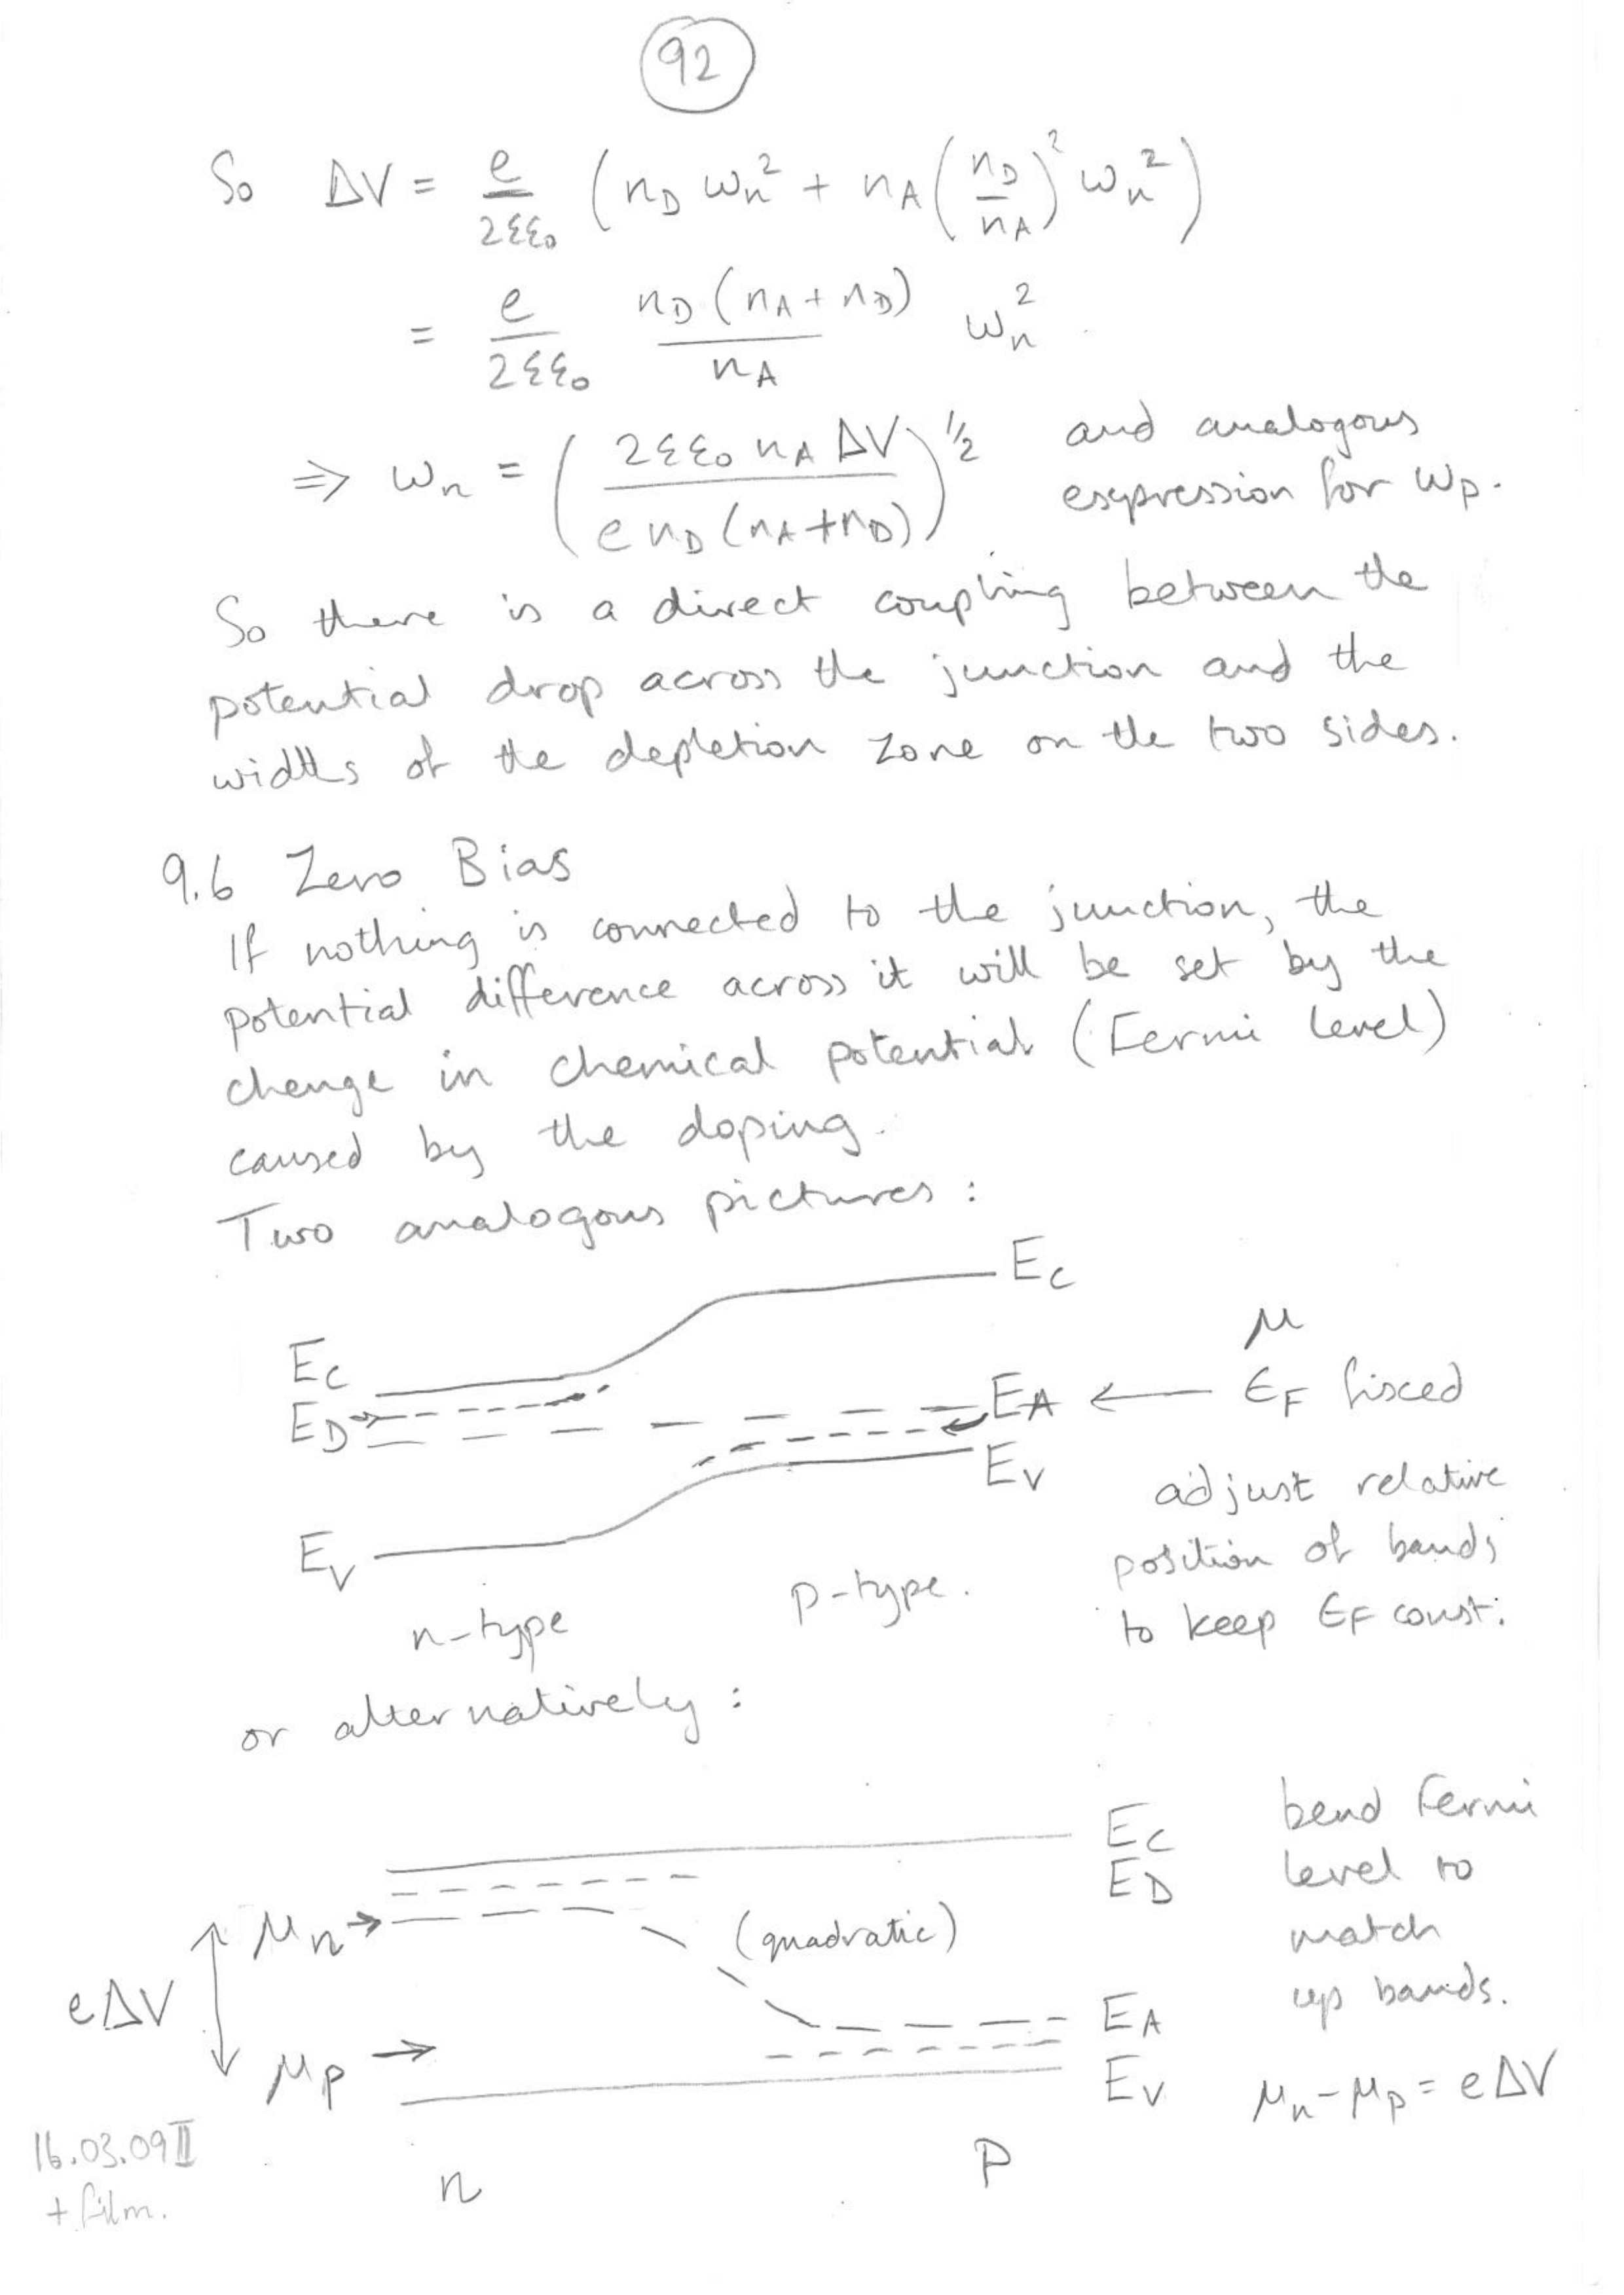 92
So ΔV = e/2εε₀ (n_D w_n² + n_A (n_D/n_A)² w_n²)
= e/2εε₀ n_D(n_A + n_D)/n_A w_n²
⇒ w_n = (2εε₀ n_A ΔV / e n_D (n_A + n_D))^½ and analogous
expression for w_p.
So there is a direct coupling between the
potential drop across the junction and the
widths of the depletion zone on the two sides.
9.6 Zero Bias
If nothing is connected to the junction, the
potential difference across it will be set by the
change in chemical potential (Fermi level)
caused by the doping.
Two analogous pictures:
E_C
μ
E_C
E_D
E_A ← ε_F fixed
E_V
adjust relative
position of bands
to keep ε_F const.
E_V
n-type
p-type.
or alternatively:
E_C
E_D
bend Fermi
level to
match
up bands.
μ_n
(quadratic)
eΔV
E_A
μ_p
E_V
μ_n - μ_p = eΔV
n
p
16.03.09 II
+ film.